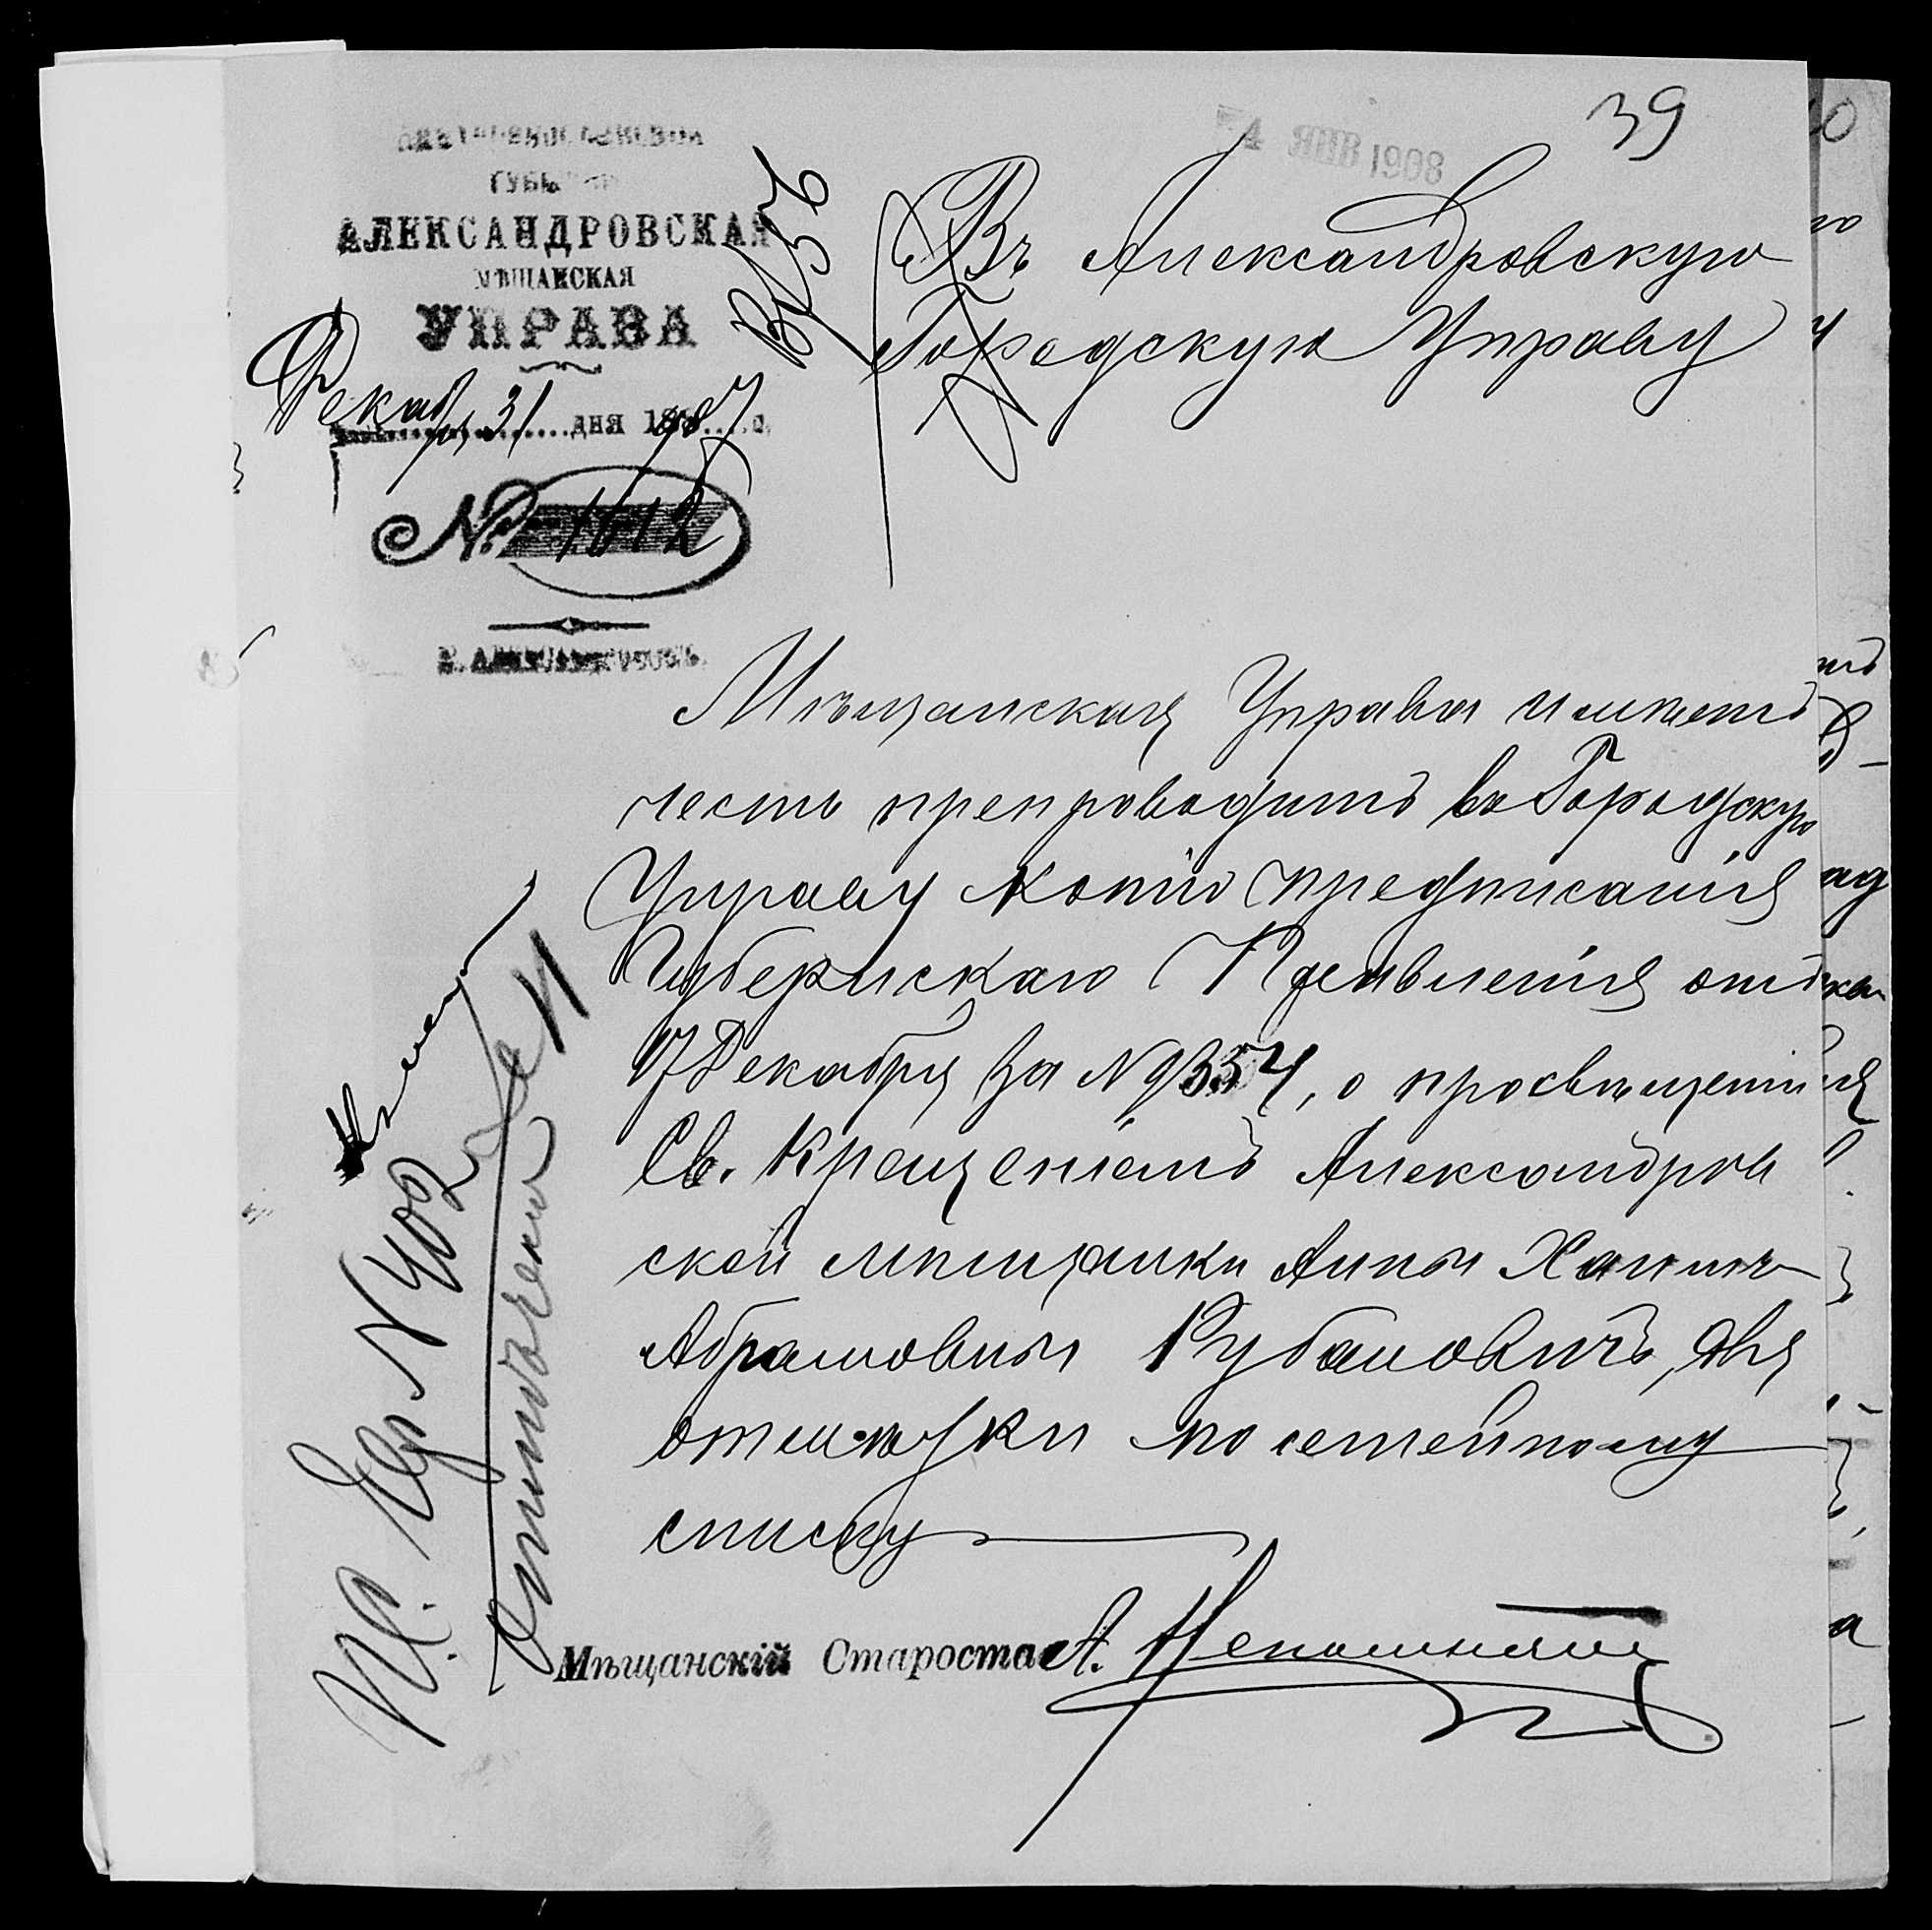 39
4 ЯНВ 1908
ЕКАТЕРИНОСЛАВСКОЙ
ГУБЕРНІИ
АЛЕКСАНДРОВСКАЯ
МѢЩАНСКАЯ
УПРАВА
Декабря 31 дня 1907 г.
№ 1612
Г. АЛЕКСАНДРОВСКЪ.
Въ Александровскую
Городскую Управу
Мѣщанская Управа имѣетъ
честь препроводить въ Городскую
Управу копію предписанія
Губернскаго Правленія отъ
17 Декабря за № 9354, о просвѣщеніи
Св. Крещеніемъ Александров
ской мѣщанки Анны Хаимъ
Абрамовны Рубановичъ, для
отмѣтки по семейному
списку
Мѣщанскій Староста А. Непомнящи
П.С. Евр. № 402